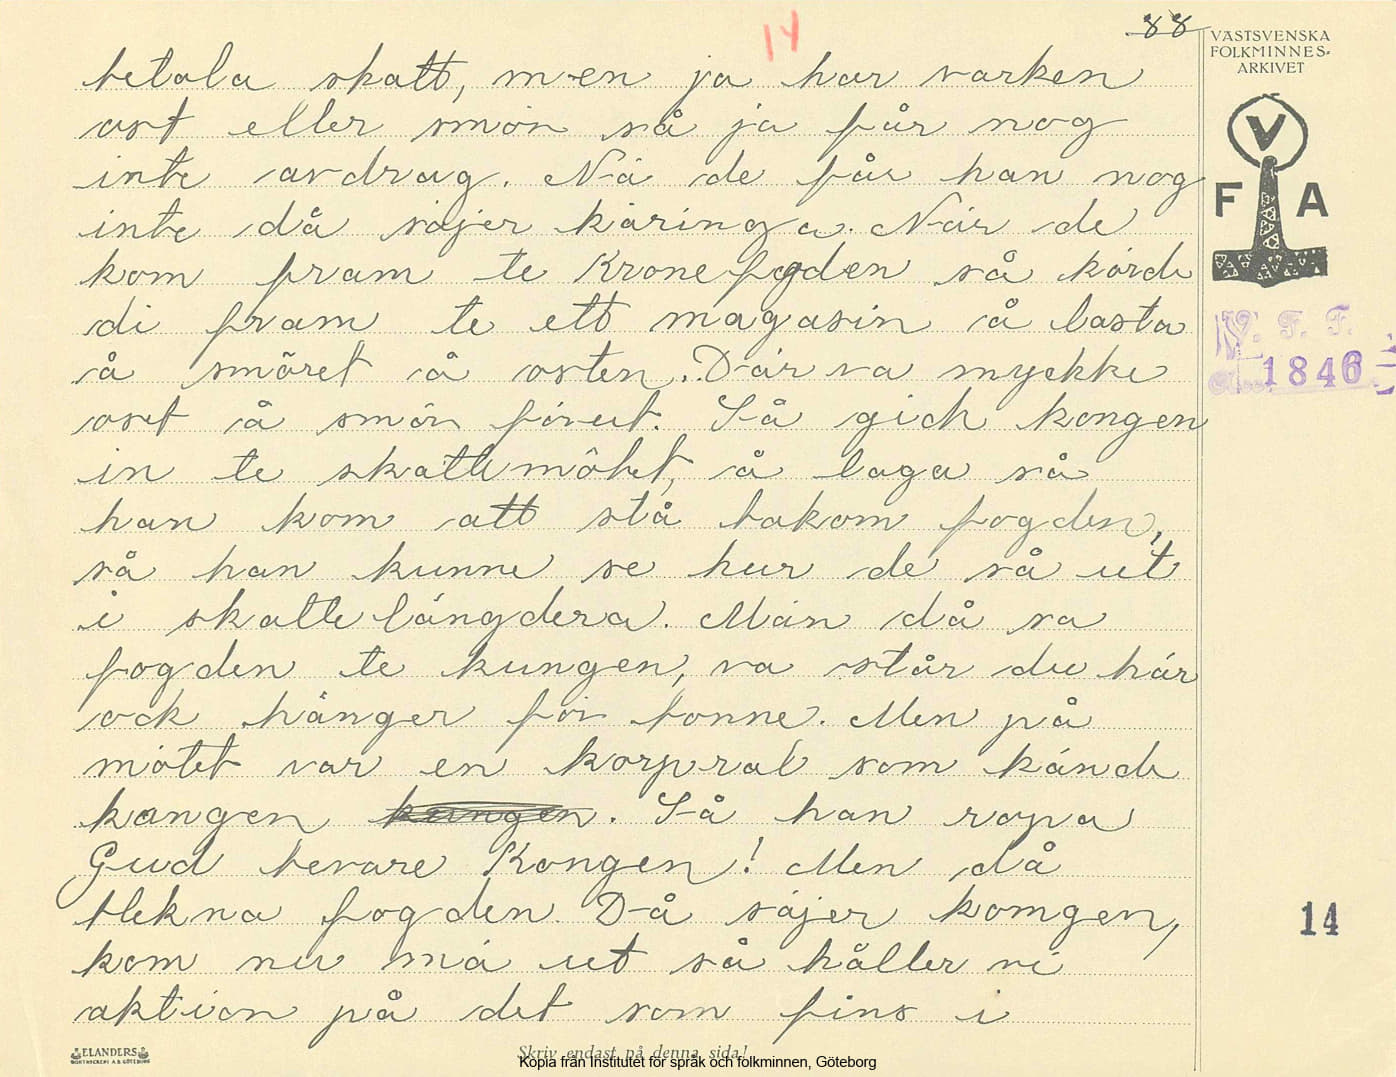 14
88
VÄSTSVENSKA
FOLKMINNES-
ARKIVET
V
F A
V. F. F.
1846
betala skatt, men ja har varken
ost eller smör så ja får nog
inte avdrag. Nä de får han nog
inte då säjer käringa. När de
kom fram te Kronefogden så körde
di fram te ett magasin å lasta
å smöret å osten. Där va mycke
ost å smör förut. Så gick kongen
in te skattemötet, å laga så
han kom att stå bakom fogden,
så han kunne se hur de så ut
i skattelängdera. Män då sa
fogden te kungen, va står du här
ock hänger för fonne. Men på
mötet var en korpral som kände
kongen kungen. Så han ropa
Gud bevare Kongen! Men då
blekna fogden Då säjer komgen,
kom nu mä ut så håller vi
aktion på det som fins i
14
ELANDERS
BOKTRYCKERI A.B. GÖTEBORG
Skriv endast på denna sida!
Kopia från Institutet för språk och folkminnen, Göteborg